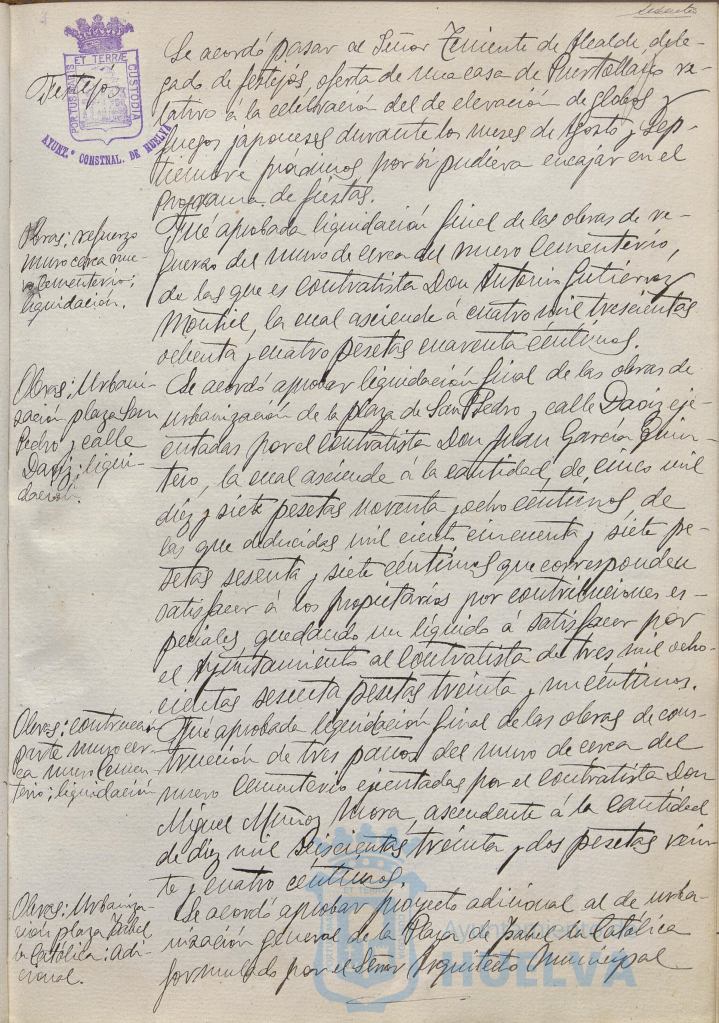 Festejos
PORTUS MARIS ET TERRÆ CUSTODIA
AYUNT.º CONSTNAL. DE HUELVA
Se acordó pasar al Señor Teniente de Alcalde, dele-
gado de festejos, oferta de una casa de Puertollano re-
lativo á la celebración del de elevación de globos y
juegos japoneses durante los meses de Agosto y Sep-
tiembre próximos por si pudiera encajar en el
programa de fiestas.
Obras; refuerzo
muro cerca nue-
vo Cementerio;
liquidación.
Fué aprobada liquidación final de las obras de re-
fuerzo del muro de cerca del nuevo Cementerio,
de las que es contratista Don Antonio Gutiérrez
Montiel, la cual asciende á cuatro mil trescientas
ochenta y cuatro pesetas cuarenta céntimos.
Obras; Urbani-
zación plaza San
Pedro y calle
Daoiz; liqui-
dación.
Se acordó aprobar liquidación final de las obras de
urbanización de la plaza de San Pedro y calle Daoiz eje-
cutadas por el contratista Don Juan García Quin-
tero, la cual asciende á la cantidad de cinco mil
diez y siete pesetas noventa y ocho centimos, de
las que deducidas mil ciento cincuenta y siete pe-
setas sesenta y siete céntimos que corresponden
satisfacer á los propietarios por contribuciones es-
peciales quedando un líquido á satisfacer por
el Ayuntamiento al contratista de tres mil ocho-
cientas sesenta pesetas treinta y un céntimos.
Obras; contrucción
parte muro cer-
ca nuevo Cemen-
terio; liquidación
Fué aprobada liquidación final de las obras de cons-
trucción de tres paños del muro de cerca del
nuevo Cementerio ejecutadas por el contratista Don
Miguel Muñoz Mora, ascendente á la cantidad
de diez mil seiscientas treinta y dos pesetas vein-
te y cuatro céntimos.
Obras; Urbaniza-
ción plaza Isabel
la Católica; adi-
cional.
Se acordó aprobar proyecto adicional al de urba-
nización general de la Plaza de Isabel la Católica
formulado por el Señor Arquitecto Municipal
Ayuntamiento
HUELVA